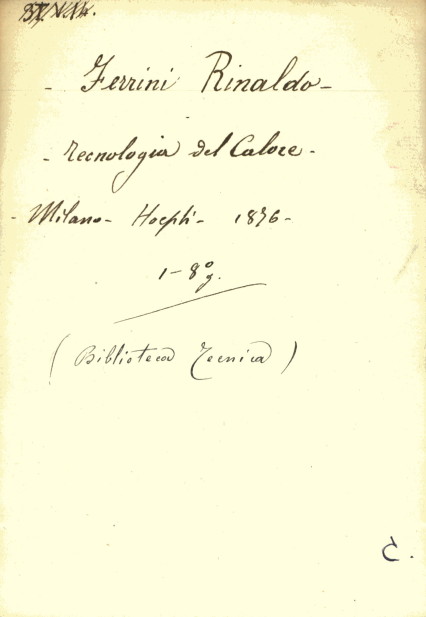 - Ferrini Rinaldo -
- Tecnologia del Calore -
- Milano - Hoepli - 1876 -
1 - 8º g.
( Biblioteca Tecnica )
C.